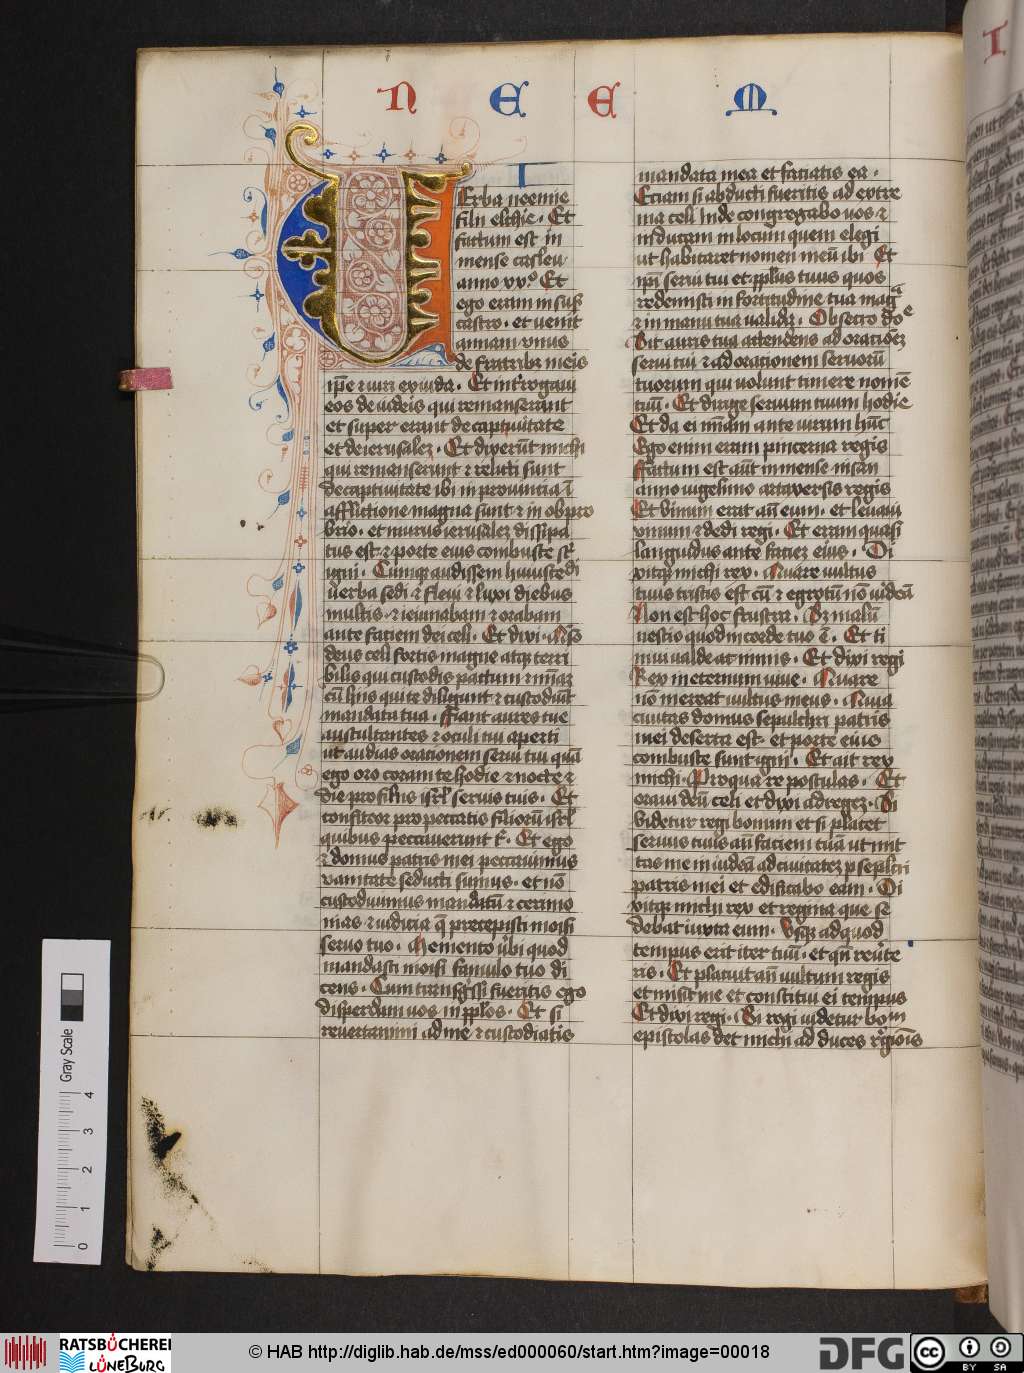 N E E M
I
Verba neemie
filii elchie · Et
factum est in
mense casleu
anno xxº · Et
ego eram in sus̄
castro · et venit
annam vnus
de fratribꝫ meis
ip̄e ⁊ viri ex iuda · Et int̓rogaui
eos de iudeis qui remanserant
et super erant de captiuitate
et de ierusalem · Et dixerūt michi
qui remanserunt ⁊ relicti sunt
de captiuitate ibi in prouincia ī
afflictione magna sunt ⁊ in obpro
brio · et murus ierusalem dissipa
tus est · ⁊ porte eius combuste st̄
igni · Cumqꝫ audissem huiuscedi
v̓erba sedi ⁊ fleui ⁊ luxi diebus
multis · ⁊ ieiunabam ⁊ orabam
ante faciem dei celi · Et dixi ·
deus celi fortis magne atqꝫ terri
bilis qui custodis pactum ⁊ mīam
cū hijs qui te diligunt ⁊ custodiūt
mandata tua · Fiant aures tue
auscultantes ⁊ oculi tui aperti
ut audias orationem serui tui quā
ego oro coram te hodie ⁊ nocte ⁊
die pro filijs isrl̄ seruis tuis · Et
confiteor pro peccatis filiorū isrl̄
quibus peccauerunt t̄ · Et ego
⁊ domus patris mei peccauimus
vanitate seducti sumus · et nō
custodiuimus mandatū ⁊ cerimo
nias ⁊ iudicia q̄ precepisti moisi
seruo tuo · Memento v̓bi quod
mandasti moisi famulo tuo di
cens · Cum transg̓ssi fueritis ego
disperdam vos in pp̄los · Et si
reuertamini ad me ⁊ custodiatis
mandata mea et faciatis ea ·
Eciam si abducti fueritis ad extre
ma celi Inde congregabo uos ⁊
inducam in locum quem elegi
ut habitaret nomen meū ibi Et
ip̄i serui tui et pp̄lus tuus quos
redemisti in fortitudine tua magᵃ
⁊ in manu tua valida · Obsecro doᵉ
Sit auris tua attendens ad orationē
serui tui ⁊ ad orationem seruorū
tuorum qui volunt timere nomē
tuū · Et dirige seruum tuum hodie
Et da ei mīam ante virum hūc
Ego enim eram pincerna regis
Factum est aūt in mense nisan
anno vigesimo artaxersis regis
Et vinum erat an̄ eum · et leuaui
vinum ⁊ dedi regi · Et eram quasi
languidus ante faciem eius · Di
xitqꝫ michi rex · Quare vultus
tuus tristis est cū ⁊ egrotū nō videā
Non est hoc frustra · Sꝫ malū
nescio quod in corde tuo ē · Et ti
mui valde ac nimis · Et dixi regi
Rex in eternum viue · Quare
nō mereat vultus meus · Quia
ciuitas domus sepulchri patris
mei deserta est · et porte eius
combuste sunt igni · Et ait rex
michi · Pro qua re postulas · Et
oraui deū celi et dixi ad regem · Si
videtur regi bonum et si placet
seruus tuus an̄ faciem tuā ut mit
tas me in iudeā ad ciuitatem sepulcri
patris mei et edificabo eam · Di
xitqꝫ michi rex et regina que se
debat iuxta eum · Vsqꝫ ad quod
tempus erit iter tuū · et qn̄ reu̓te
ris · Et placuit an̄ vultum regis
et misit me et constitui ei tempus
Et dixi regi · Si regi videtur boᵐ
epistolas det michi ad duces r̓gionis
Gray Scale
0 1 2 3 4
RATSBÜCHEREI
LÜNEBURG
© HAB http://diglib.hab.de/mss/ed000060/start.htm?image=00018
DFG
cc BY SA